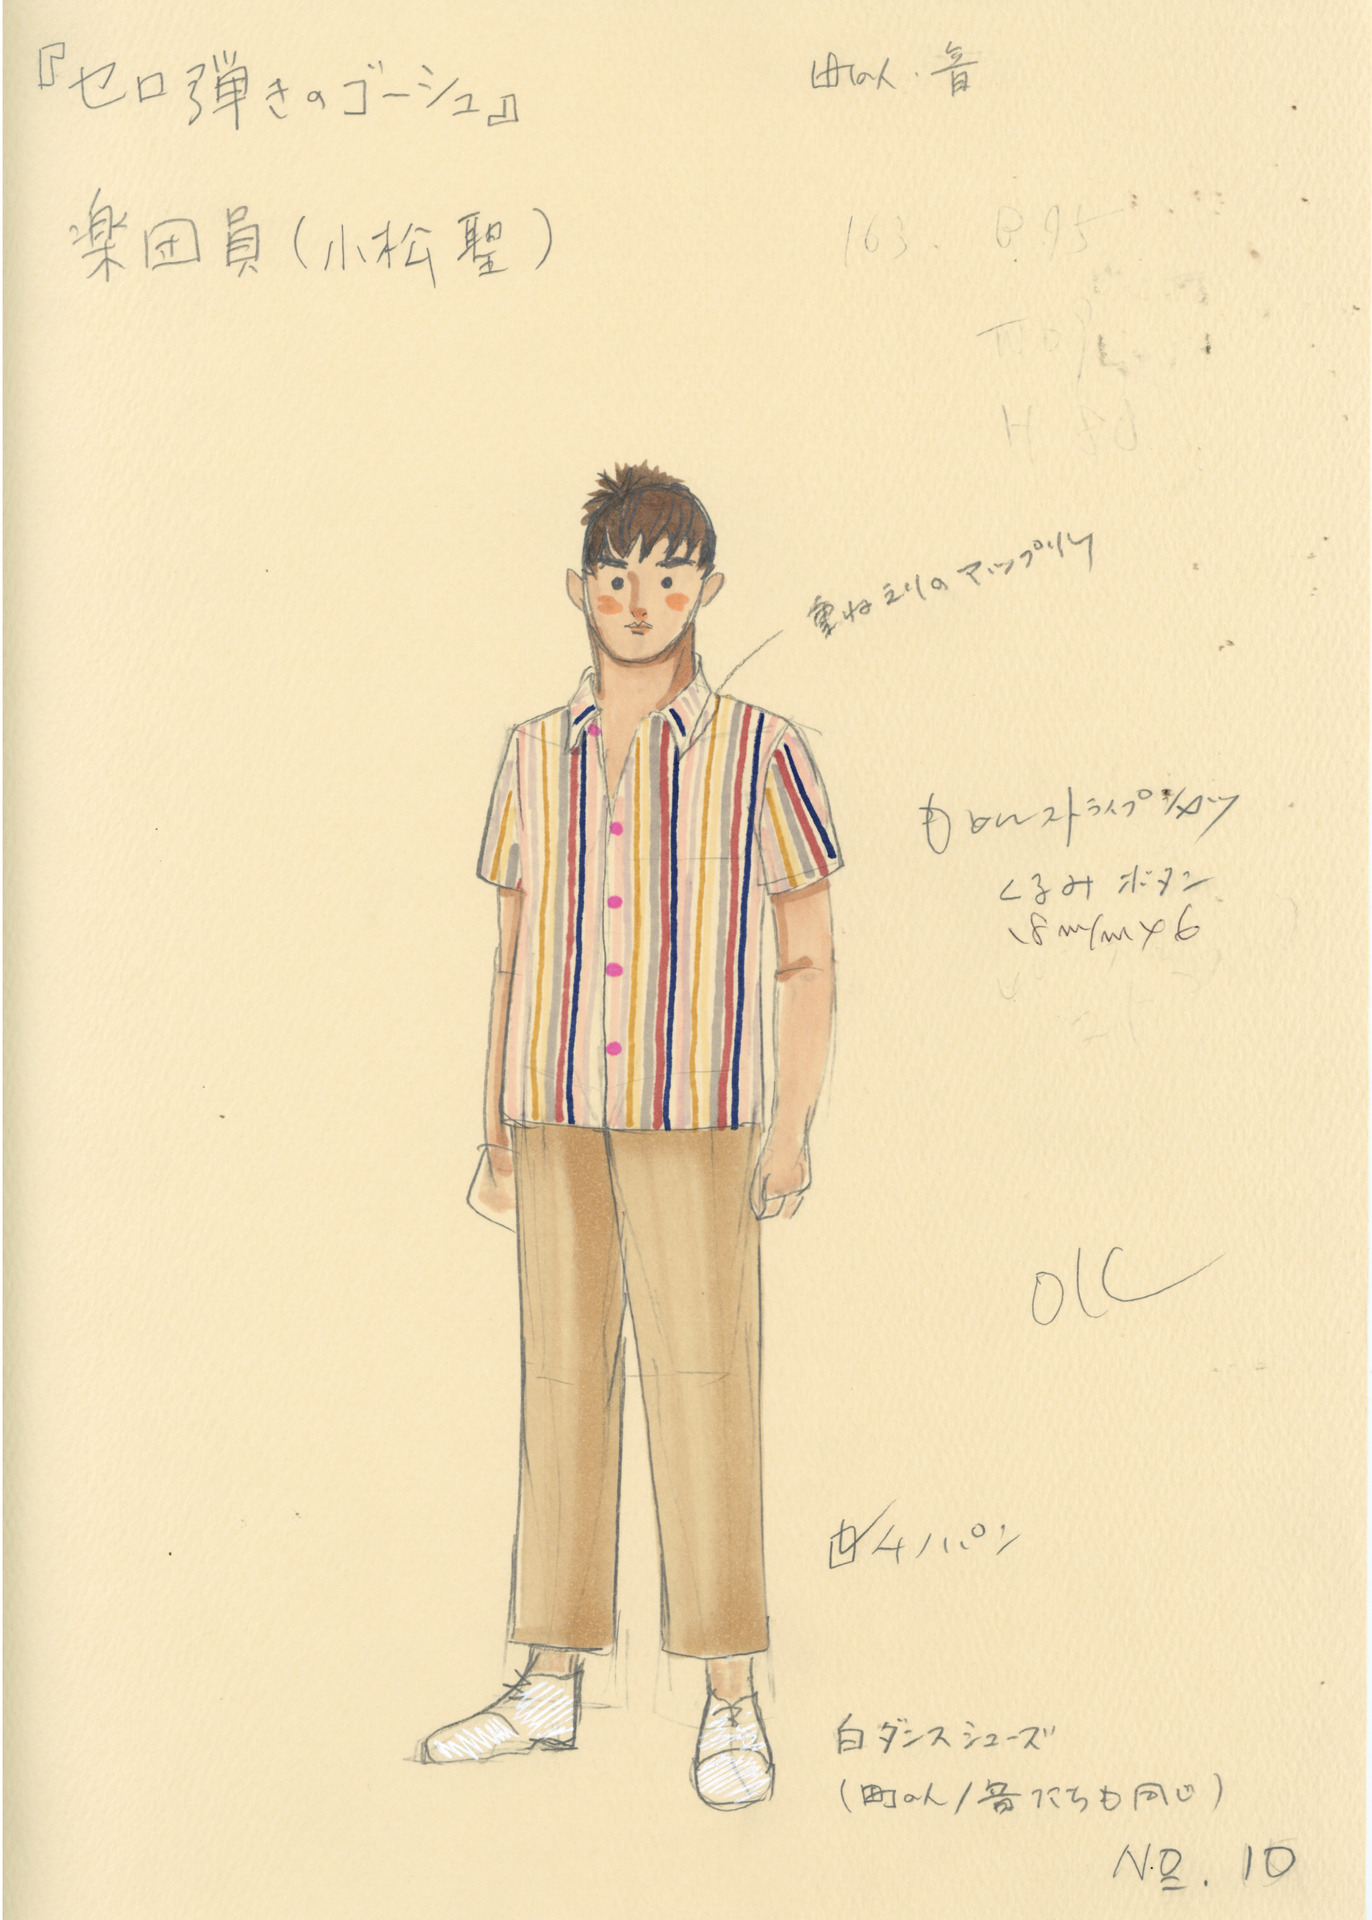 『セロ弾きのゴーシュ』
町の人・音
楽団員(小松聖)
163. B95
H 80
重ねえりのアップリケ
ストライプシャツ
くるみボタン
18m/m×6
OK
チノパン
白ダンスシューズ
(町の人/音たちも同じ)
No. 10